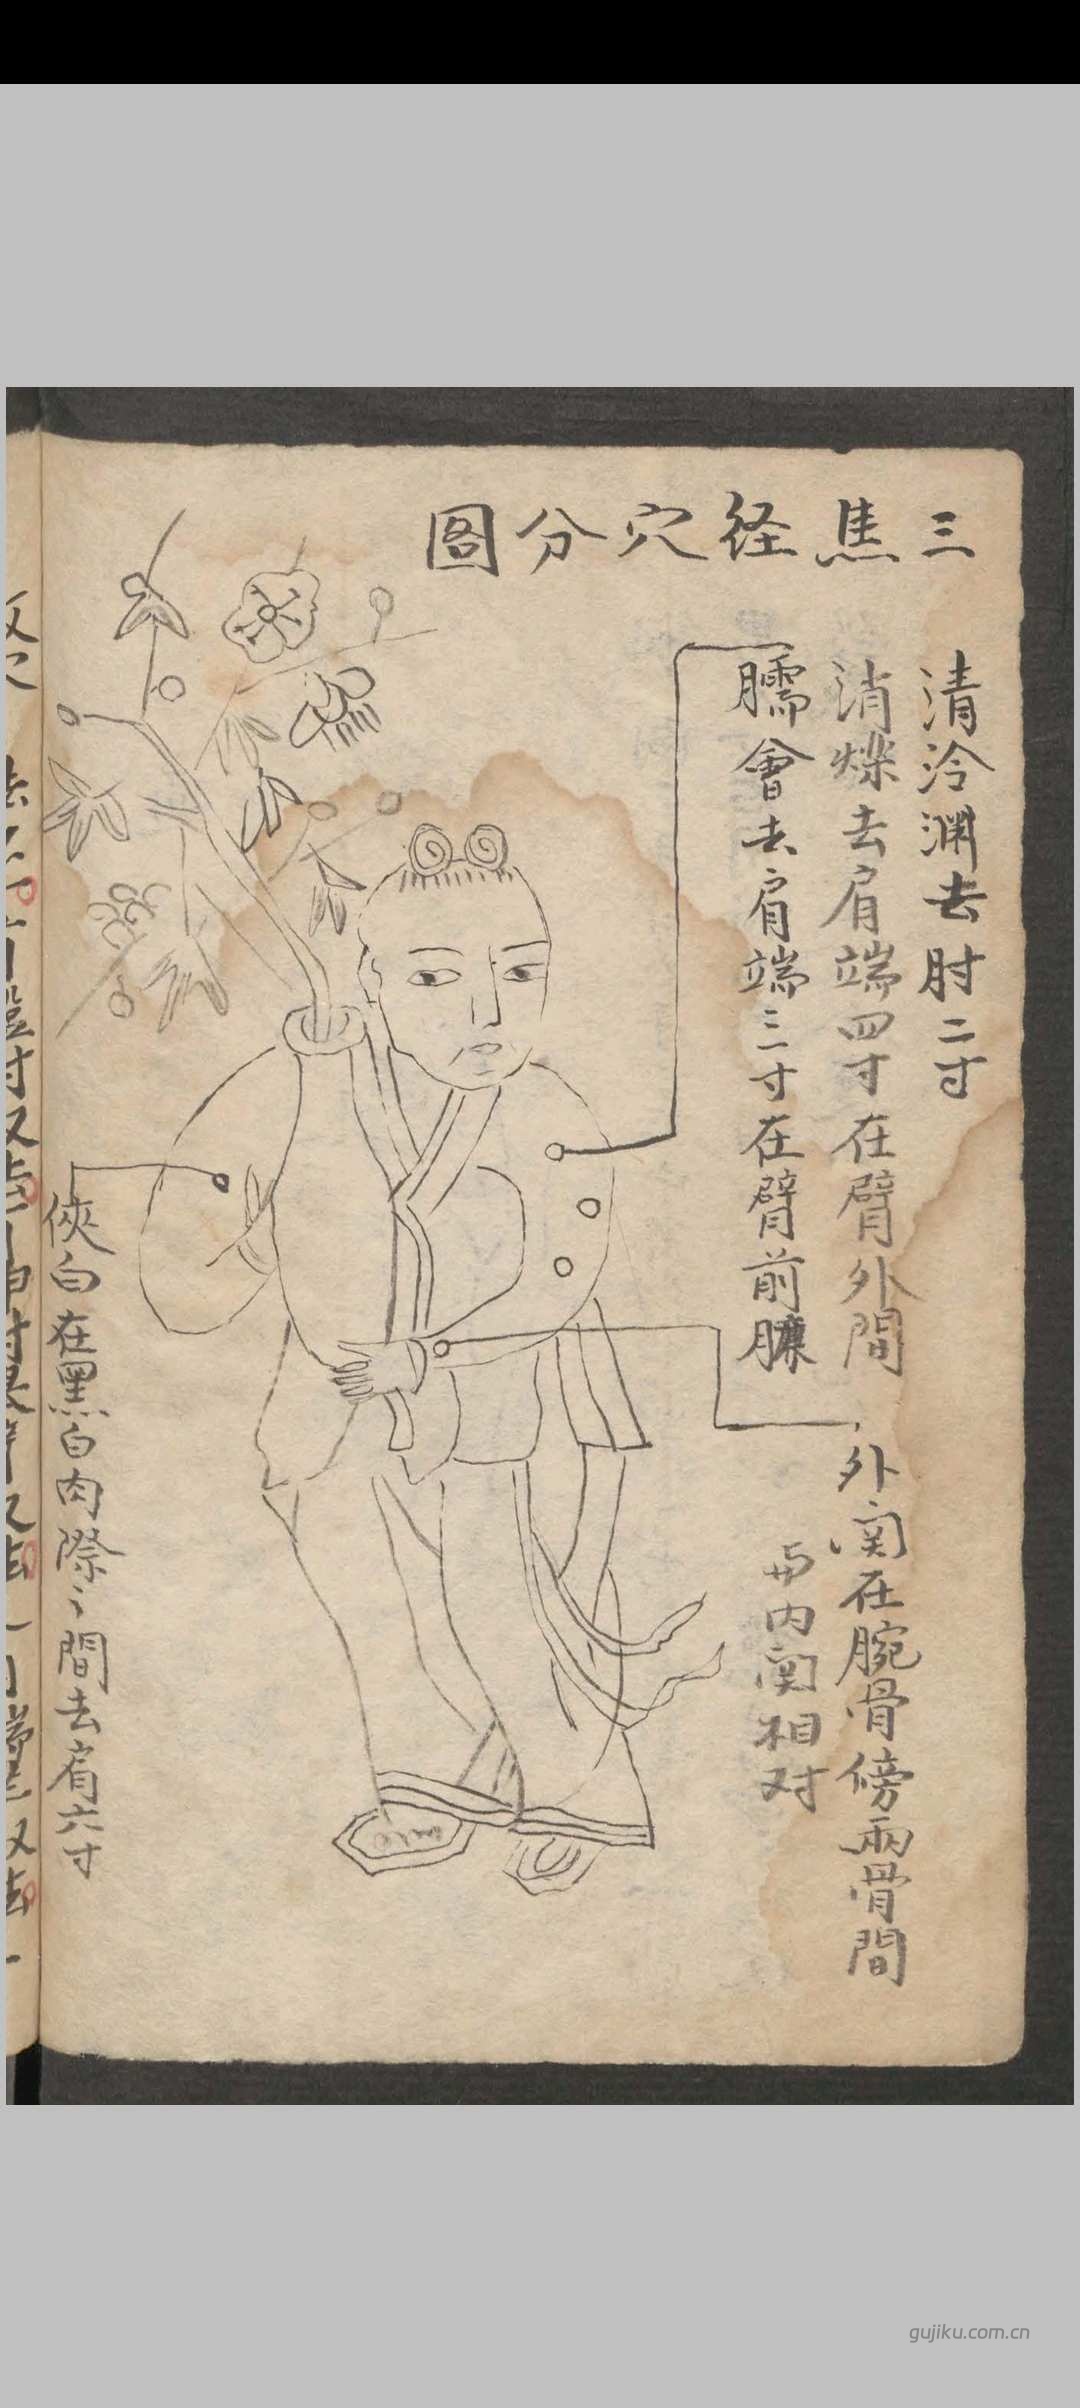 三焦経穴分圖
清泠渊去肘二寸
消爍去肩端四寸在臂外間
臑會去肩端三寸在臂前臁
外関在腕骨傍兩骨間
与内関相对
俠白在黑白肉際々間去肩六寸
gujiku.com.cn